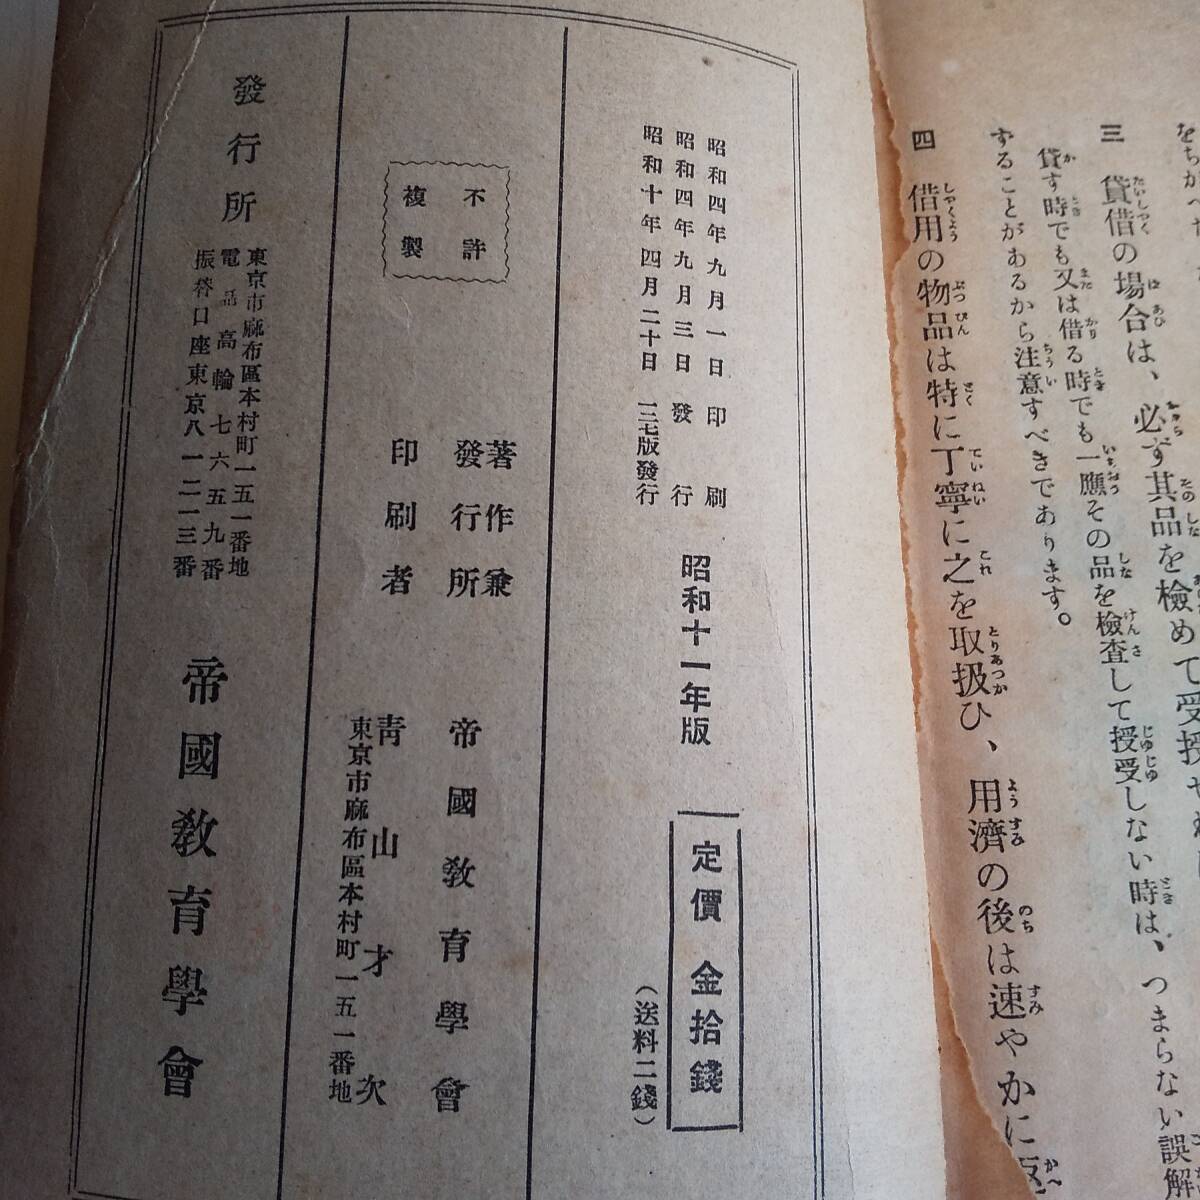 をちがへた
三 貸借の場合は、必ず其品を檢めて受授
貸す時でも又は借る時でも一應その品を檢査して授受しない時は、つまらない誤解
することがあるから注意すべきであります。
四 借用の物品は特に丁寧に之を取扱ひ、用濟の後は速やかに返
昭和四年九月一日印刷
昭和四年九月三日發行
昭和十年四月二十日 三宅版發行
昭和十一年版
定價金拾錢
(送料二錢)
不許
複製
著作兼
發行所 帝國敎育學會
印刷者 靑山才次
東京市麻布區本村町一五一番地
發行所
東京市麻布區本村町一五一番地
電話高輪七六五九番
振替口座東京八一二一三番
帝國敎育學會